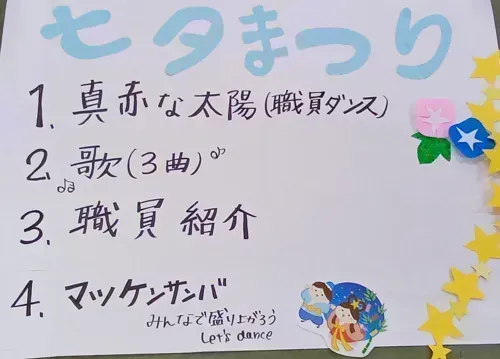 七夕まつり
1. 真赤な太陽(職員ダンス)
2. 歌(3曲)
3. 職員紹介
4. マツケンサンバ
みんなで盛り上がろう
Let's dance